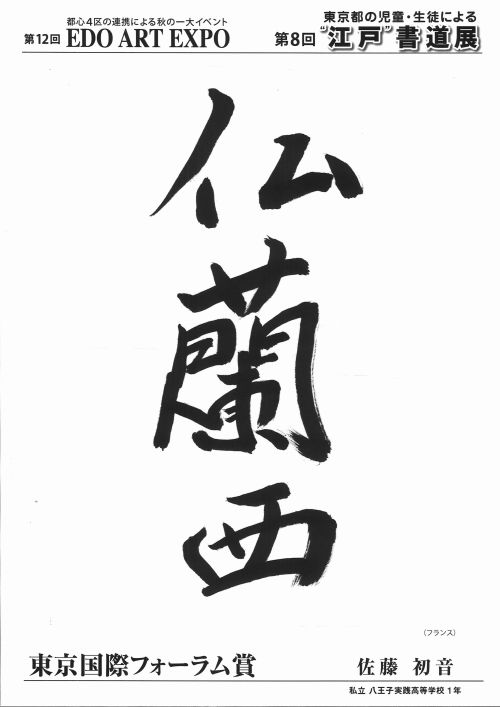 都心4区の連携による秋の一大イベント
第12回 EDO ART EXPO
東京都の児童・生徒による
第8回 "江戸"書道展
仏蘭西
(フランス)
東京国際フォーラム賞
佐藤 初音
私立 八王子実践高等学校 1年